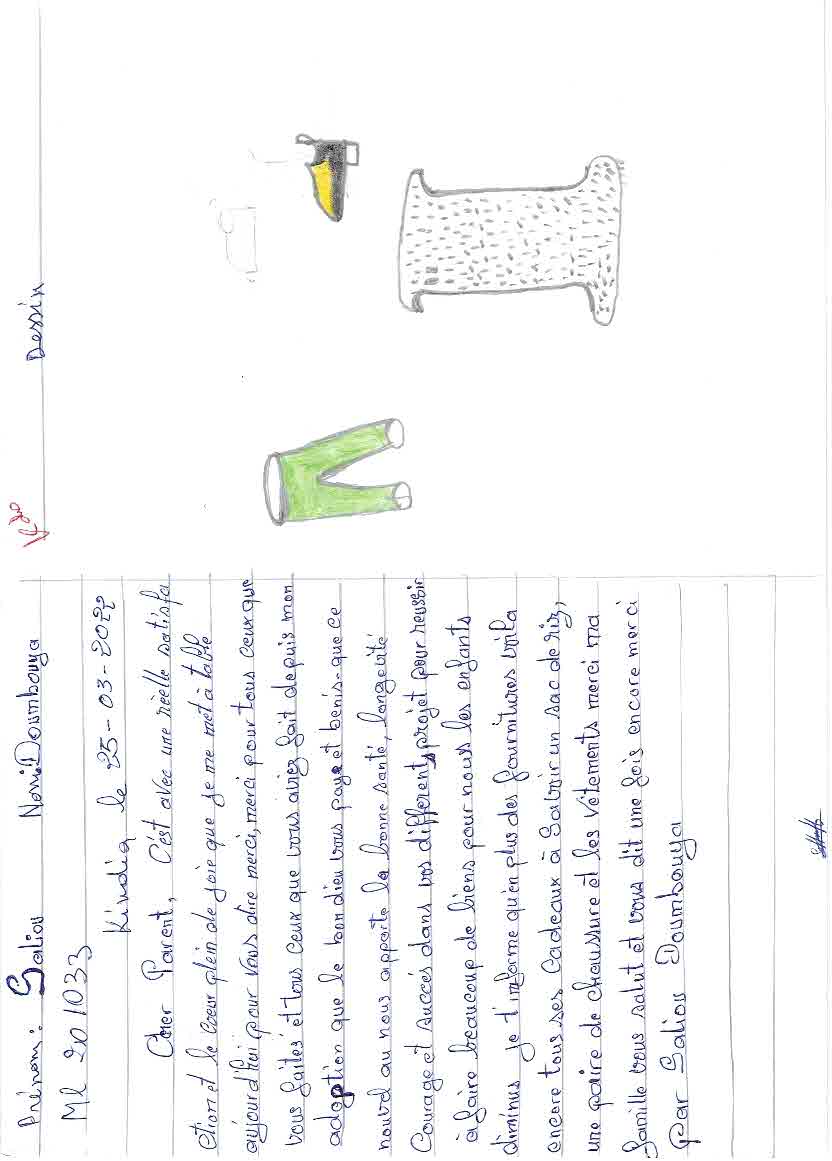 Prénom: Saliou Nom: Doumbouya
Ml 201033
Kindia le 25-03-2022
Cher Parent, C'est avec une réelle satisfa
ction et le cœur plein de joie que je me met à table
aujourd'hui pour vous dire merci, merci pour tous ceux que
vous faites et tous ceux que vous aviez fait depuis mon
adoption que le bon dieu vous paye et benis-que ce
nouvel au nous apporte la bonne santé, longévité
Courage et succés dans vos différents projet pour reussir
à faire beaucoup de biens pour nous les enfants
diminus je t'informe qu'en plus des fournitures voila
encore tous ses cadeaux à Savoir un sac de riz,
une paire de chaussure et les vêtements merci ma
famille vous salut et vous dit une fois encore merci
Par Saliou Doumbouya
Dessin